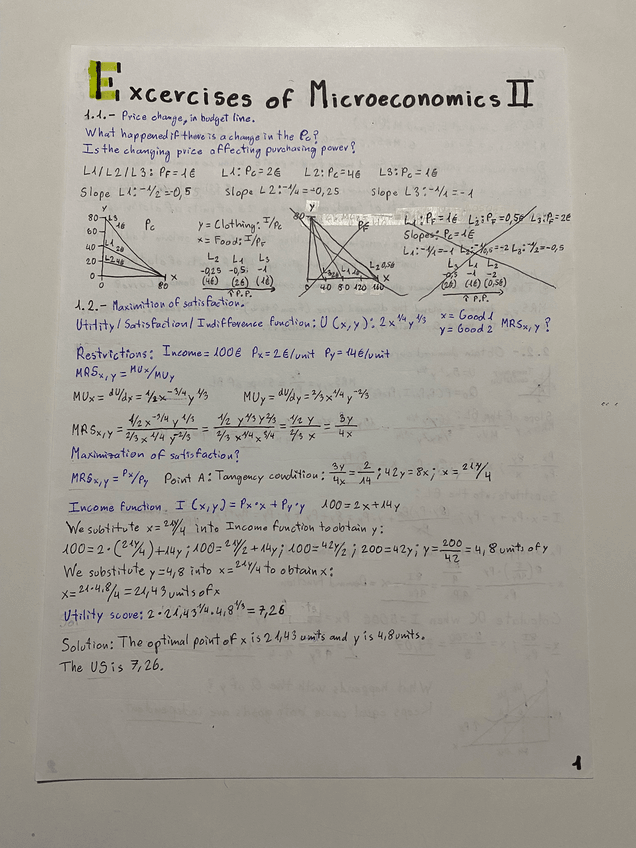 Excercises of Microeconomics II
1.1.- Price change, in budget line.
What happened if there is a change in the Pc?
Is the changing price affecting purchasing power?
L1/L2/L3: PF=1€ L1: Pc=2€ L2: Pc=4€ L3: Pc=1€
Slope L1: -1/2=-0,5 Slope L2: -1/4=-0,25 Slope L3: -1/1=-1
Y
80
60
40
20
0
L3 1€
L1 2€
L2 4€
80
X
Pc
y = Clothing: I/Pc
x = Food: I/PF
L2 L1 L3
-0,25 -0,5 -1
(4€) (2€) (1€)
↑ P.P.
Y
80
PF
L3 2€ L1 1€ L2 0,5€
0 40 80 120 160
X
L1: PF=1€ L2: PF=0,5€ L3: PF=2€
Slopes: Pc=1€
L1: -1/1=-1 L2: -1/0,5=-2 L3: -1/2=-0,5
-0,5 -1 -2
(2€) (1€) (0,5€)
↑ P.P.
1.2.- Maximition of satisfaction.
Utility/Satisfaction/Indifference function: U(x,y): 2x^1/4 y^1/3 x = Good 1 y = Good 2 MRSx,y?
Restrictions: Income=100€ Px=2€/unit Py=14€/unit
MRSx,y = MUx/MUy
MUx = dU/dx = 1/2x^-3/4 y^1/3 MUy = dU/dy = 2/3 x^1/4 y^-2/3
MRSx,y = 1/2 x^-3/4 y^1/3 / 2/3 x^1/4 y^-2/3 = 1/2 y^1/3 y^2/3 / 2/3 x^1/4 x^3/4 = 1/2 y / 2/3 x = 3y / 4x
Maximization of satisfaction?
MRSx,y = Px/Py Point A: Tangency condition: 3y/4x = 2/14; 42y=8x; x=21y/4
Income function. I(x,y) = Px·x + Py·y 100=2x+14y
We substitute x=21y/4 into Income function to obtain y:
100=2·(21y/4)+14y; 100=21y/2+14y; 100=42y/2; 200=42y; y=200/42=4,8 units of y
We substitute y=4,8 into x=21y/4 to obtain x:
x=21·4,8/4=21,43 units of x
Utility score: 2·21,43^1/4·4,8^1/3=7,26
Solution: The optimal point of x is 21,43 units and y is 4,8 units.
The US is 7,26.
1